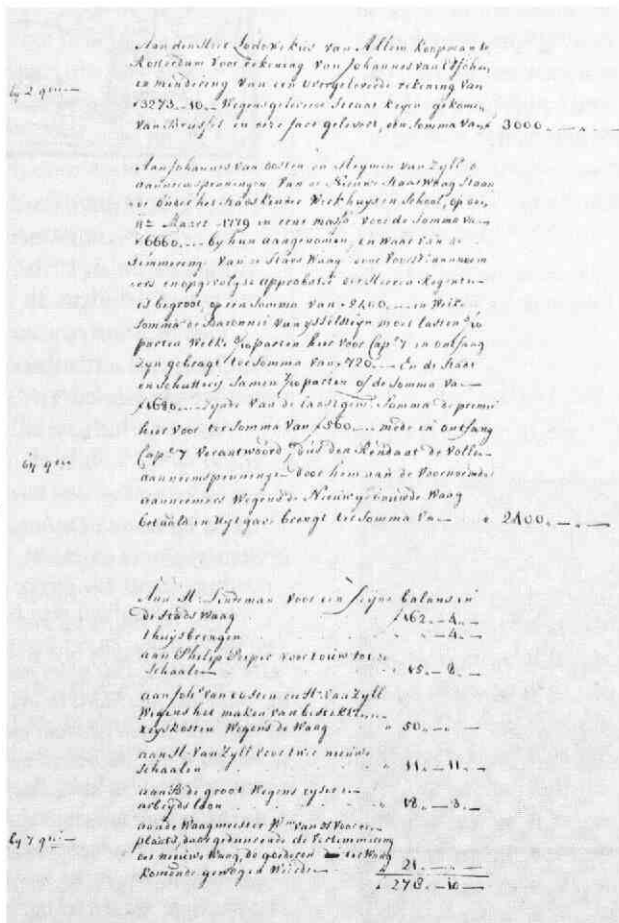 Aan den Heer Lodovikus van Allem Koopman te
Rotterdam voor rekening van Johannes van
in mindering van een overgeleverde rekening van
ƒ3273.-10.- Wegens geleverde Straat keijen gekomen
by 2 qui:
van Brussel en deze jaar gelevert, een somma van ƒ 3000.-.-
Aan Johannes van Oosten en Steymen van Zyll o
aanneempenningen van de Nieuwe Stads Waag Staan
de onder het Stads kinder Werkhuys en School, op den
11e Maart 1779 in eene massa voor de somma van
ƒ6660.- by hun aangenomen, en waar van de
timmering van de Stads Waag door voorst: aannem
ers en opgevolgde approbatie der Heeren Regenten
is begroot op een Somma van ƒ2400.- in welke
somma de Baronnie van Ysselsteyn moet lasten 3/10
parten welke 3/10 parten hier voor Cap:l 7 in ontfang
zyn gebragt ter somma van ƒ720.- En de Stad
en Schutterij samen 7/10 parten of de Somma van
ƒ1680.- zynde van de laastgem: Somma de premie
hier voor ter somma van ƒ560.- mede in ontfang
by qui
Cap:l 7 verantwoord, dus den Rendant de volle
aanneempenningen door hem aan de voornoemde
aannemers Wegens de Nieuw gebouwde Waag
betaald in uytgave brengt ter Somma van ƒ 2400.-.-
Aan H: Lindeman voor een fijne balans in
de Stads Waag ƒ162.-4.-
thuysbrengen " -.4.-
aan Philip Pesper voor touw tot de
schaalen " 15.-8.-
aan Joh: van Oosten en St: van Zyll
Wegens het maken van bestek en
reyskosten Wegens de Waag " 50.-.-
aan St: van Zyll voor twee nieuwe
schaalen " 11.-11.-
aan B: de groot Wegens yser en
arbeyds loon " 18.-3.-
by 7 qui:
aan de Waagmeester Wm van voor een
plaats, daar geduurende de vertimmering
der nieuwe Waag, de goederen ter Waag
komende gewogen wierden " 21.-.-
ƒ 278.-10.-